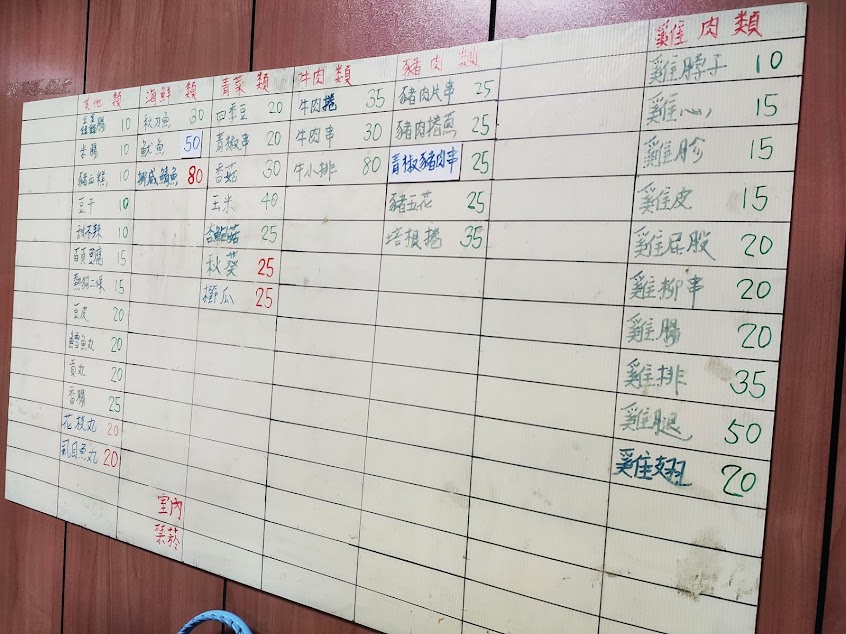 其他類 海鮮類 青菜類 牛肉類 豬肉類 雞肉類
鑫鑫腸 10 秋刀魚 30 四季豆 20 牛肉捲 35 豬肉片串 25 雞脖子 10
米腸 10 魷魚 50 青椒串 20 牛肉串 30 豬肉捲蔥 25 雞心 15
豬血糕 10 挪威鯖魚 80 香菇 30 牛小排 80 青椒豬肉串 25 雞胗 15
豆干 10 玉米 40 豬五花 25 雞皮 15
甜不辣 10 杏鮑菇 25 培根捲 35 雞屁股 20
百頁豆腐 15 秋葵 25 雞柳串 20
熱狗二條 15 櫛瓜 25 雞腸 20
豆皮 20 雞排 35
鱈魚丸 20 雞腿 50
貢丸 20 雞翅 20
香腸 25
花枝丸 20
虱目魚丸 20
室內
禁菸